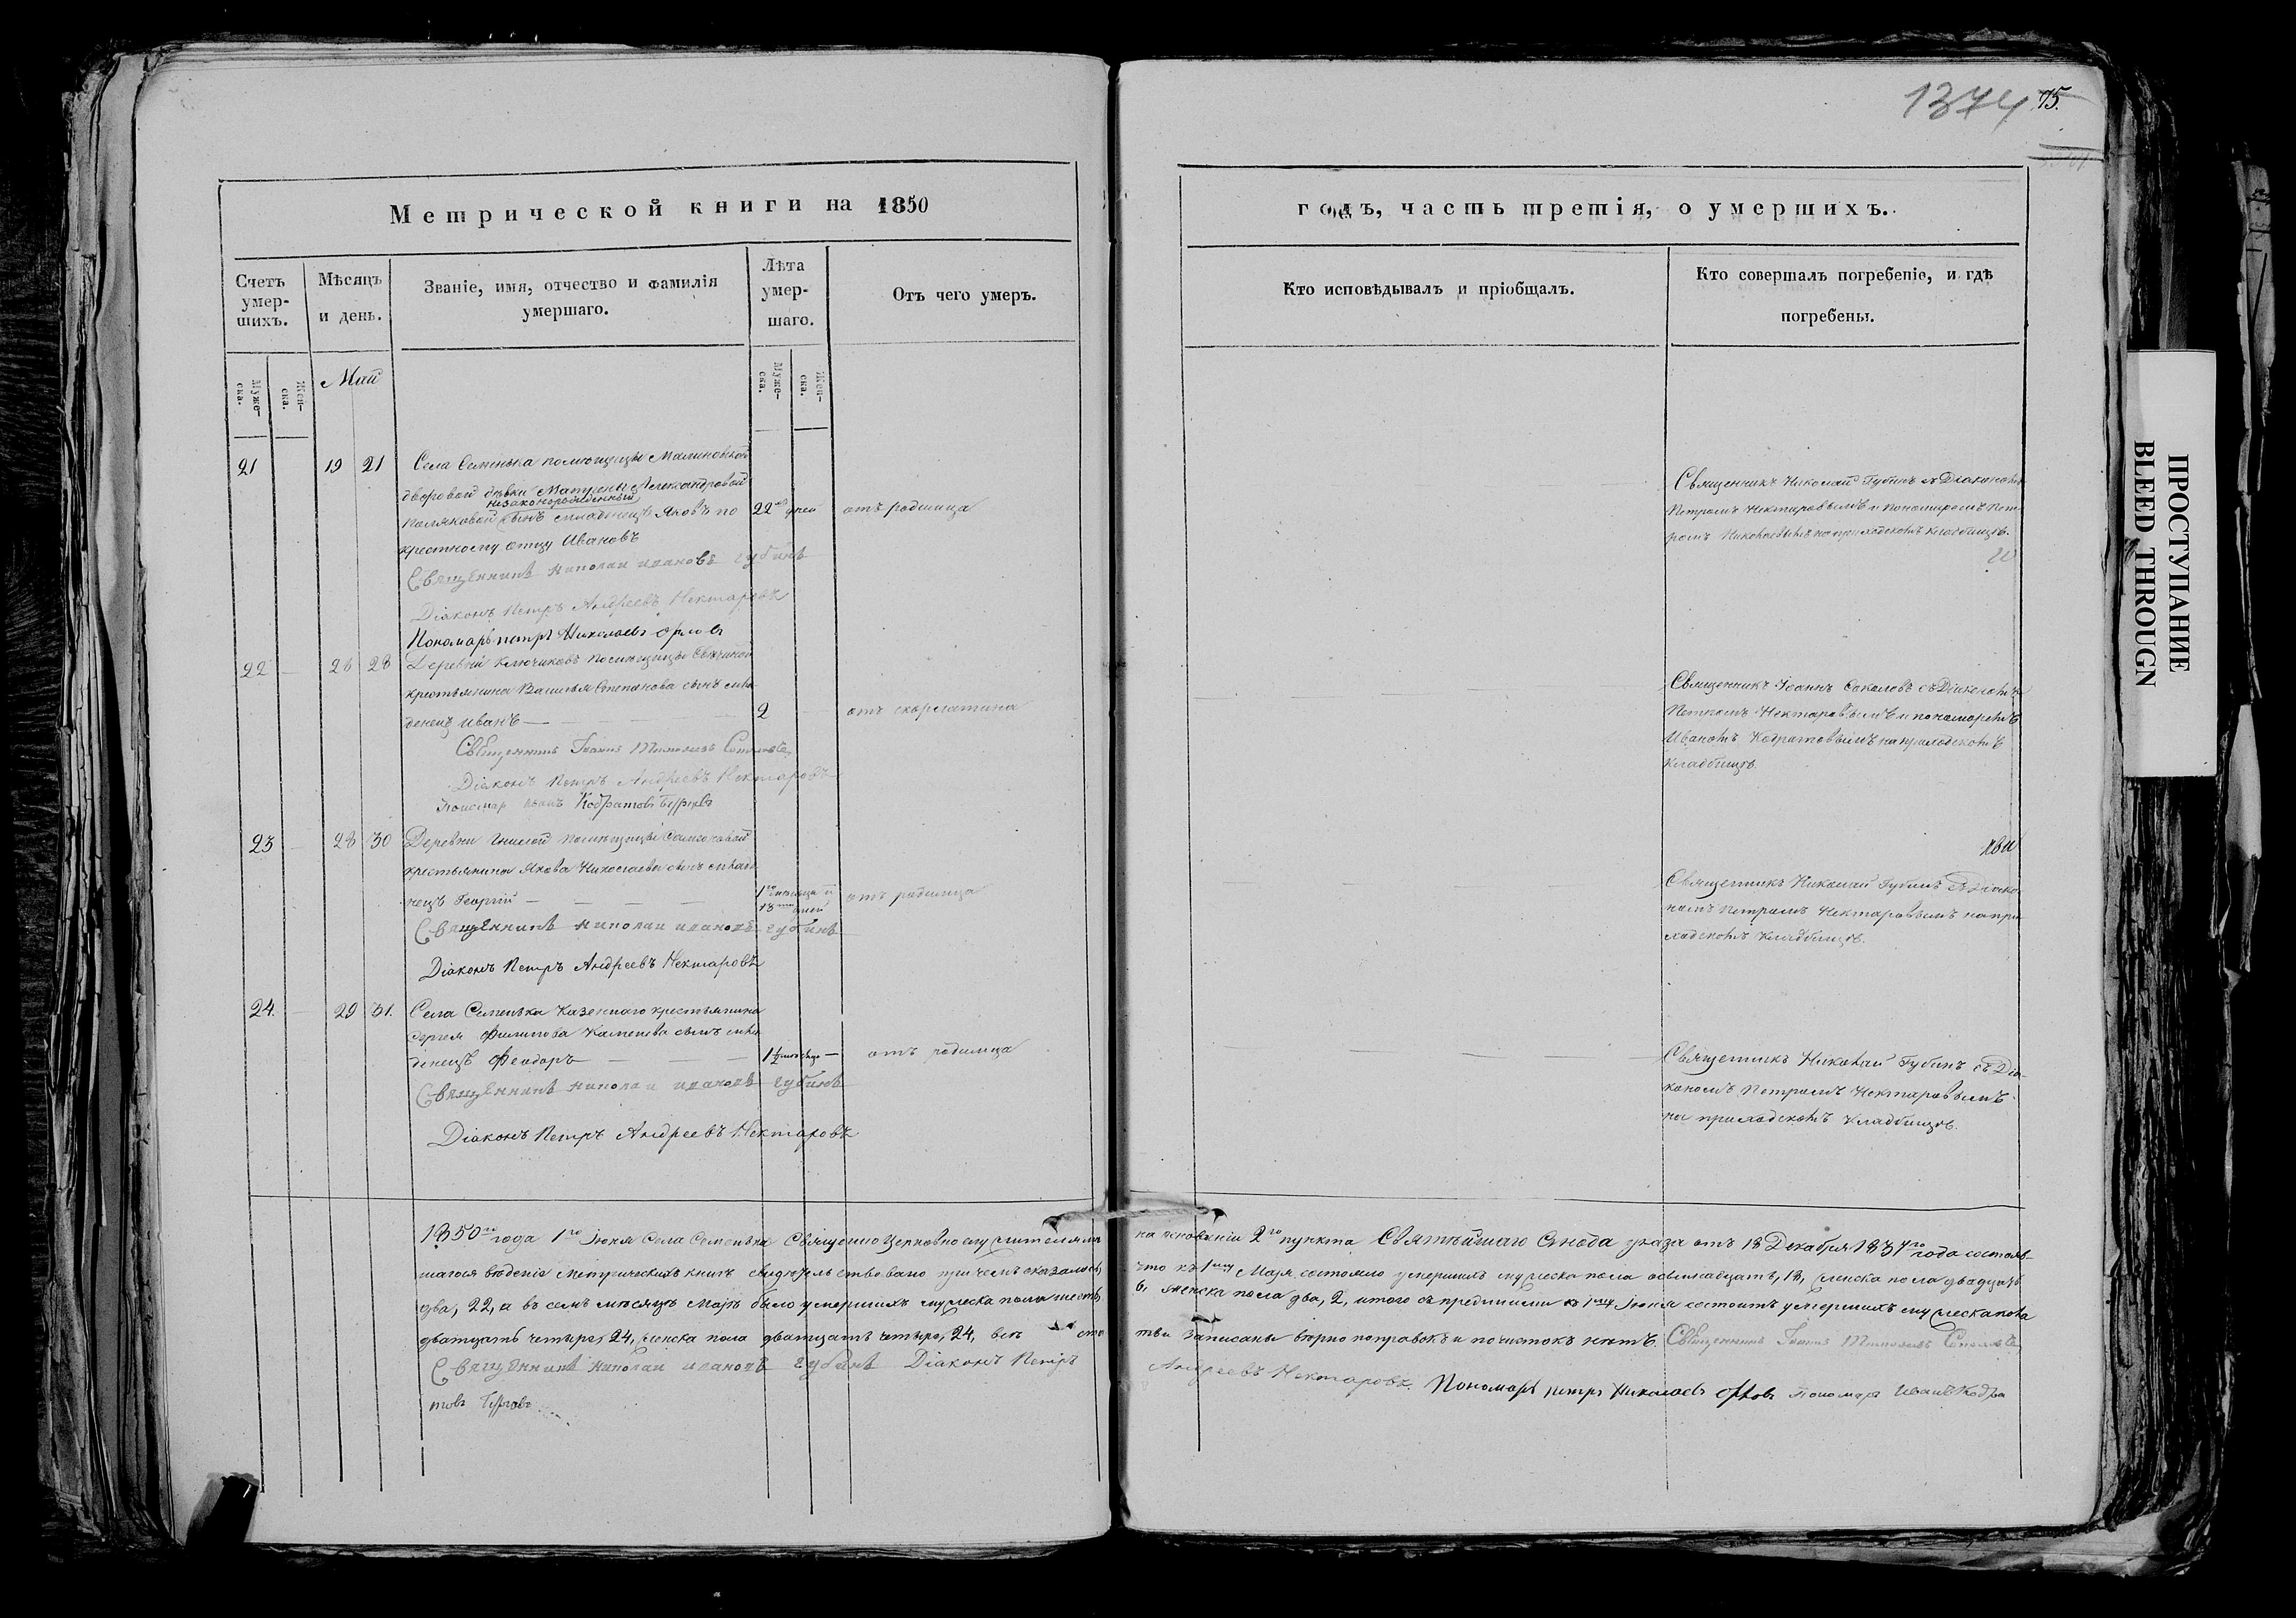 1374 75.
Метрической книги на 1850
годъ, часть третія, о умершихъ.
Счетъ умер-шихъ.
Мѣсяцъ и день.
Званіе, имя, отчество и фамилія умершаго.
Лѣта умер-шаго.
Отъ чего умеръ.
Кто исповѣдывалъ и пріобщалъ.
Кто совершалъ погребеніе, и гдѣ погребены.
Муже-ска.
Жен-ска.
Май
Муже-ска.
Жен-ска.
21 19 21 Села Семенька помѣщицы Малиновской
дворовой дѣвки Матрены Александровой
незаконорожденный
Поляковой сынъ младенецъ Яковъ по 22 дней отъ родимца
крестному отцу Ивановъ
Священникъ Николай Ивановъ Губинъ
Діаконъ Петръ Андреевъ Нектаровъ
Пономарь Петръ Николаевъ Орловъ
Священникъ Николай Губинъ съ Діакономъ
Петромъ Нектаровымъ и пономаремъ Пет-
ромъ Николаевымъ на приходскомъ кладбищѣ.
22 26 28 Деревни Ключиковъ помѣщицы
крестьянина Василья Степанова сынъ мла-
денецъ Иванъ 2 отъ скорлатина
Священникъ Іоаннъ Соколовъ
Діаконъ Петръ Андреевъ Нектаровъ
Пономарь Иванъ Кодратовъ
Священникъ Іоаннъ Соколовъ съ Діакономъ
Петромъ Нектаровымъ и пономаремъ
Иваномъ Кодратовымъ на приходскомъ
кладбищѣ.
23 28 30 Деревни Гнилой помѣщицы
крестьянина Якова Николаева сынъ младе-
нецъ Георгій 1го мѣсяца и 18 дней отъ родимца
Священникъ Николай Ивановъ Губинъ
Діаконъ Петръ Андреевъ Нектаровъ
Священникъ Николай Губинъ съ Діако-
номъ Петромъ Нектаровымъ на при-
ходскомъ кладбищѣ.
24. 29 31. Села Семенька Казеннаго крестьянина
Сергея Филипова Каменева сынъ мла-
денецъ Феодоръ 1½ мѣсяца отъ родимца
Священникъ Николай Ивановъ Губинъ
Діаконъ Петръ Андреевъ Нектаровъ
Священникъ Николай Губинъ съ Діа-
кономъ Петромъ Нектаровымъ
на приходскомъ кладбищѣ.
1850го года 1го Іюня Села Семенька Священно Церковно служителями на основаніи 2го пункта Святѣйшаго Синода указа отъ 18 Декабря 1837го года состояв-
шагося веденіе Метрическихъ книгъ свидѣтельствовано при чемъ оказалось, что къ 1му Мая состояло умершихъ мужеска пола осьмнадцать, 18, женска пола двадцать
два, 22, а въ семъ мѣсяцѣ Маѣ было умершихъ мужеска пола шесть 6, женска пола два, 2, итого съ прежними къ 1му Іюня состоитъ умершихъ мужеска пола
дватцать четыре, 24, женска пола дватцать четыре, 24, записаны вѣрно поправокъ и почистокъ нѣтъ. Священникъ Іоаннъ Соколовъ
Священникъ Николай Ивановъ Губинъ Діаконъ Петръ Андреевъ Нектаровъ. Пономарь Петръ Николаевъ Орловъ Пономарь Иванъ Кодра
товъ
ПРОСТУПАНИЕ
BLEED THROUGN